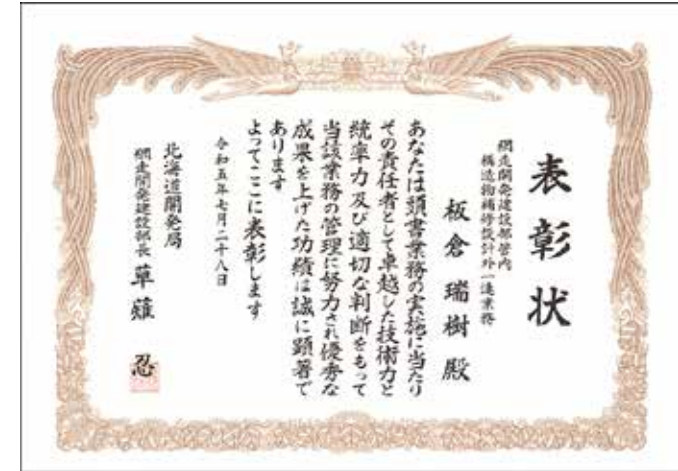 表彰状
網走開発建設部管内
構造物補修設計外一連業務
板倉瑞樹殿
あなたは頭書業務の実施に当たり
その責任者として卓越した技術力と
統率力及び適切な判断をもって
当該業務の管理に努力され優秀な
成果を上げた功績は誠に顕著で
あります
よってここに表彰します
令和五年七月二十八日
北海道開発局
網走開発建設部長 草薙 忍